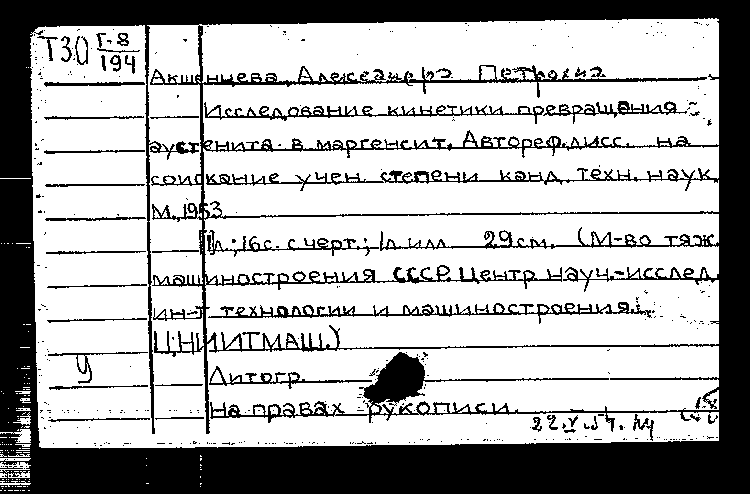 Т30 Г-8
194
Акшенцева, Александра Петровна
Исследование кинетики превращения
аустенита в мартенсит. Автореф.дисс. на
соискание учен. степени канд. техн. наук.
М., 1953.
1л.; 16с. с черт.; 1л. илл. 29см. (М-во тяж.
машиностроения СССР. Центр. науч.-исслед.
ин-т технологии и машиностроения.
ЦНИИТМАШ.)
У
Литогр.
На правах рукописи.
22.V.54.